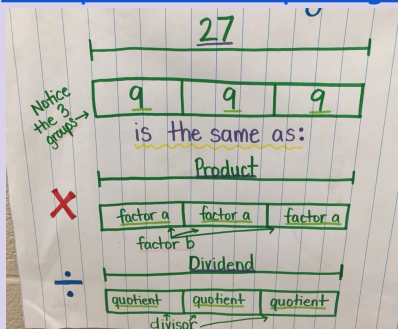 27
Notice
the 3
groups→
9 9 9
is the same as:
Product
X
factor a factor a factor a
factor b
Dividend
÷
quotient quotient quotient
divisor